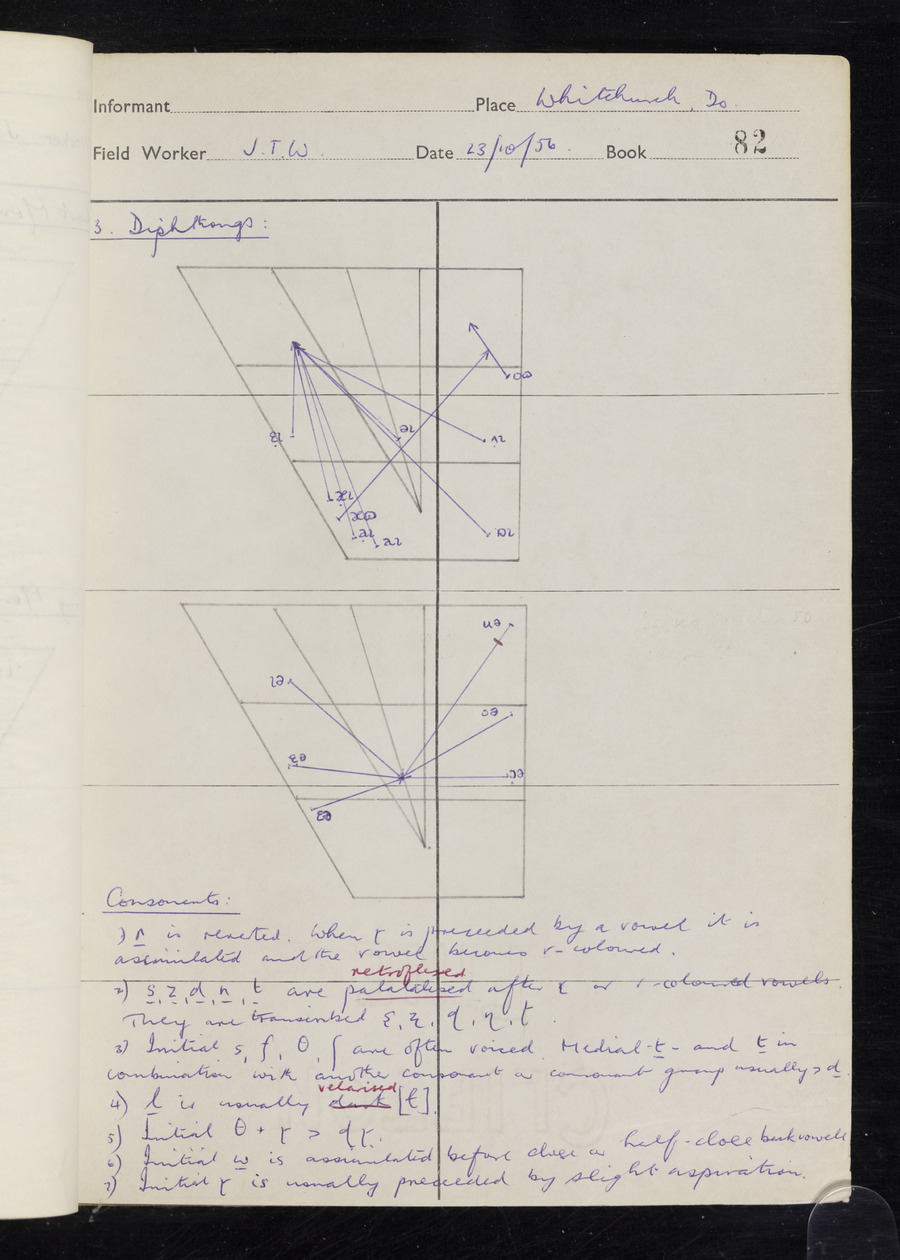 Informant Place Whitchurch, Do.
Field Worker J.T.W. Date 23/10/56. Book 82
3. Diphthongs:
ɷʊ
əɩ
ɛ̣ɩ
ʌɩ
æɩ
æɷ
ɑɩ
aɩ
aɩ
uə
ɩə
oə
ɛə
ɔə
ɛə
Consonants:
1) r is reverted. When ɽ is preceeded by a vowel it is
assimilated and the vowel becomes r-coloured.
retroflexed
2) s, z, d, n, t are palatalised after ɽ or r-coloured vowels.
They are transcribed ʂ, ʐ, ɖ, ɳ, ʈ.
3) Initial s, f, θ, ʃ are often voiced. Medial -t- and t in
combination with another consonant or consonant group usually > d.
velarised
4) l is usually dark [ɫ].
5) Initial θ + ɽ > ɖɽ.
6) Initial w is assimilated before close or half-close back vowels
7) Initial ɽ is usually preceeded by slight aspiration.